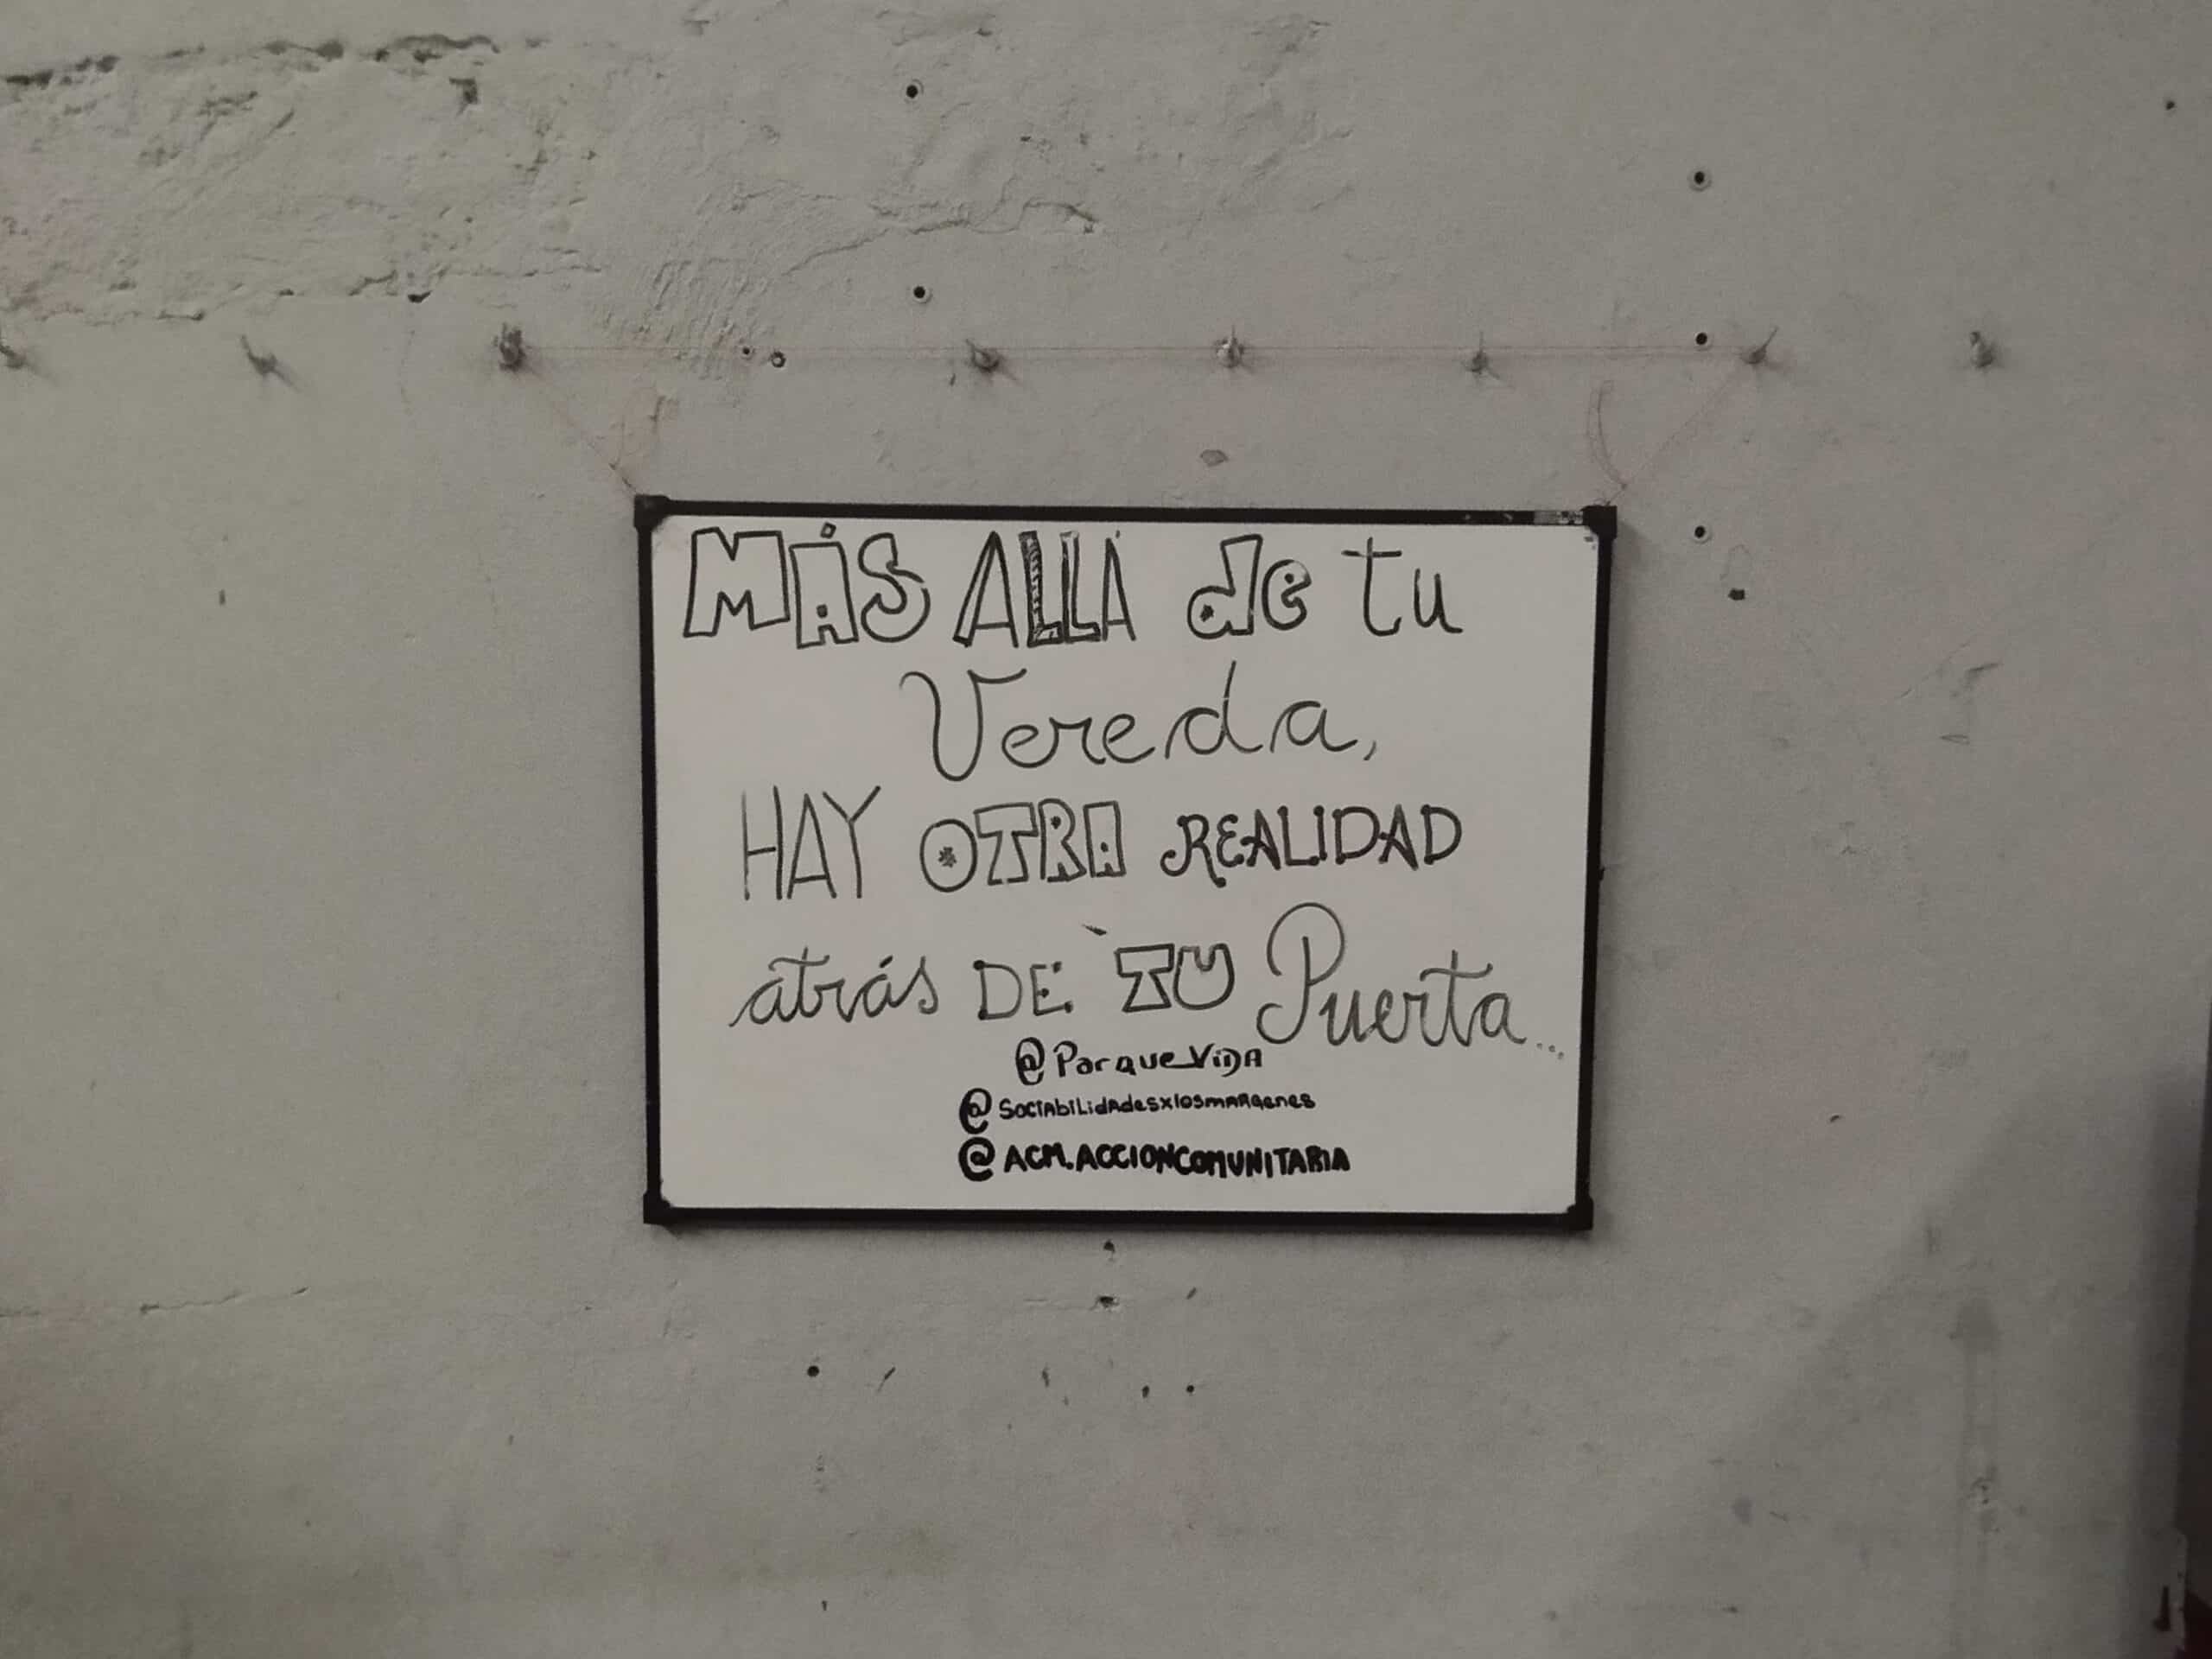 MÁS ALLÁ de tu
Vereda,
HAY OTRA REALIDAD
atrás DE TU Puerta...
@Parque_ViDA
@SociAbiLidAdesxlosmARgenes
@ACM.ACCIONCOMUNITARIA